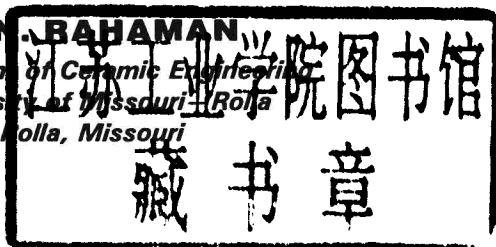 N. RAHAMAN
of Ceramic Engineering
sity of Missouri–Rolla
Rolla, Missouri
江苏工业学院图书馆
藏书章